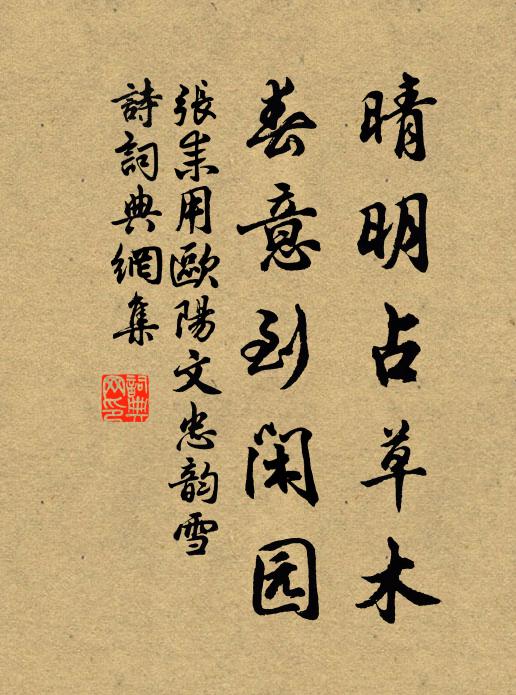 晴明占草木
春意到闲园
張耒用歐陽文忠韵雪
詩詞典網集
詞典网印